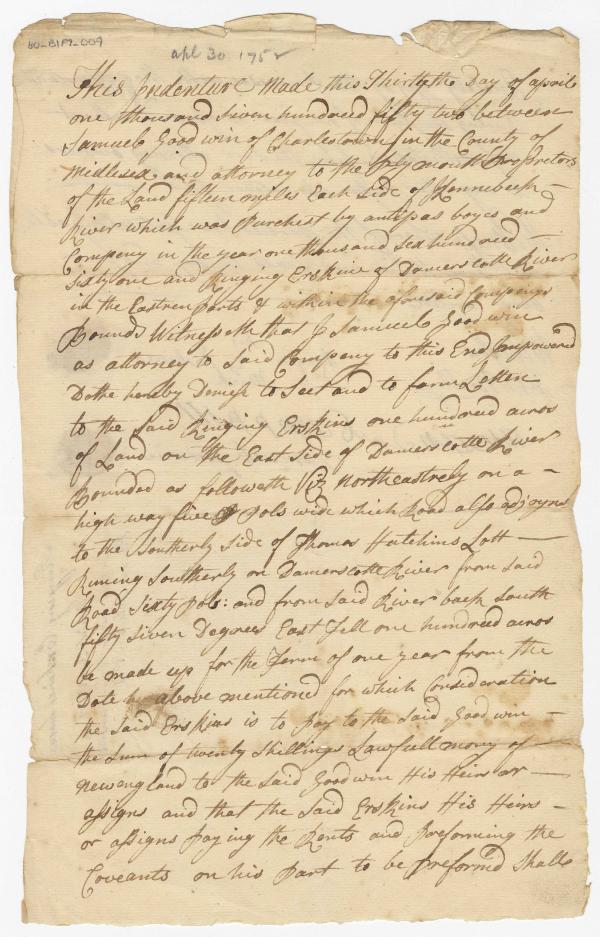 80-B1F9-009
apl 30 1752
This Indenture Made this Thirtyth Day of april
one thousand Siven hundred fifty two between
Samuel Goodwin of Charlestown in the County of
Midlesex and attorney to the plymouth Propretors
of the Land fifteen miles Each Side of Kennebeck
River which was Purchest by antipas boyes and
Compeny in the year one thousand Sex hundred
Sixty one and Ringing Erskins of Damerscotte River
in the Eastren Parts & within the aforesaid Compenys
Bounds Witnesseth that I Samuel Goodwin
as attorney to Said Compeny to this End Empowered
Dothe hereby Demise to Sett and to farm Letten
to the Said Ringing Erskins one hundred acros
of Land on the East Side of Damerscotte River
Bounded as followeth Viz Northeastrely on a
high way five Pols wide which Road also adjoyns
to the Southerly Side of Thomas Hutchins Lott
Runing Southerly on Damerscotte River from Said
Road Sixty Pols: and from Said River back South
fifty Siven Degrees East Till one hundred acros
be made up for the Term of one year from the
Date above mentioned for which Consideration
the Said Erskins is to Pay to the Said Goodwin
the Sum of twenty Shillings Lawfull mony of
Newengland to the Said Goodwin His Heirs or
assigns and that the Said Erskins His Heirs
or assigns Paying the Rents and Preforming the
Coveants on his Part to be Preformd Shall